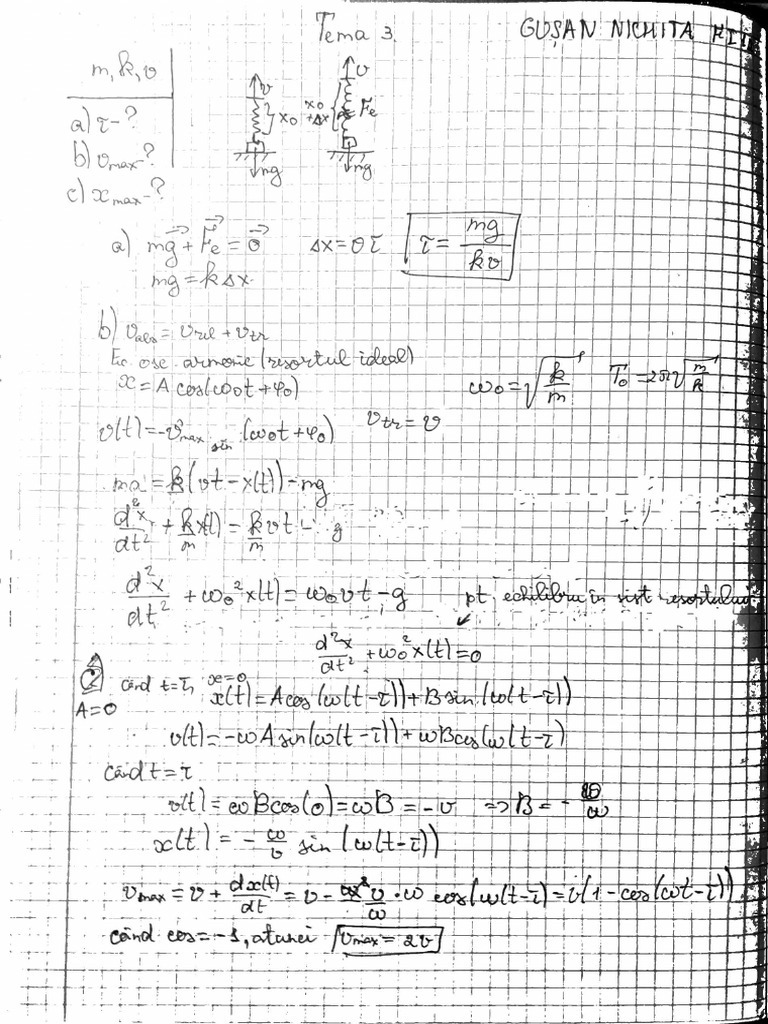 Tema 3.
GUȘAN NICHITA FII
m, k, v
a) τ-?
b) vmax-?
c) xmax-?
v
x0
mg
v
x0+Δx
Fe
mg
a) mg + Fe = 0 Δx = υτ τ = mg/kv
mg = kΔx
b) vabs = vrel + vtr
Ec. osc. armonic (resortul ideal)
x = A cos(ω0t + φ0) ω0 = √(k/m) T0 = 2π√(m/k)
v(t) = -vmax sin (ω0t + φ0) vtr = v
ma = k(vt - x(t)) - mg
d²x/dt² + k/m x(t) = k/m vt - g
d²x/dt² + ω0²x(t) = ω0vt - g pt. echilibru în sist resortului
d²x/dt² + ω0²x(t) = 0
când t=τ, x=0 x(t) = A cos(ω(t-τ)) + B sin(ω(t-τ))
A=0
v(t) = -ωA sin(ω(t-τ)) + ωB cos(ω(t-τ)
când t=τ
v(t) = ωB cos(0) = ωB = -v => B = -v/ω
x(t) = -ω/v sin(ω(t-τ))
vmax = v + dx(t)/dt = v - v/ω · ω cos(ω(t-τ) = v(1 - cos(ωt-τ))
când cos = -1, atunci vmax = 2v